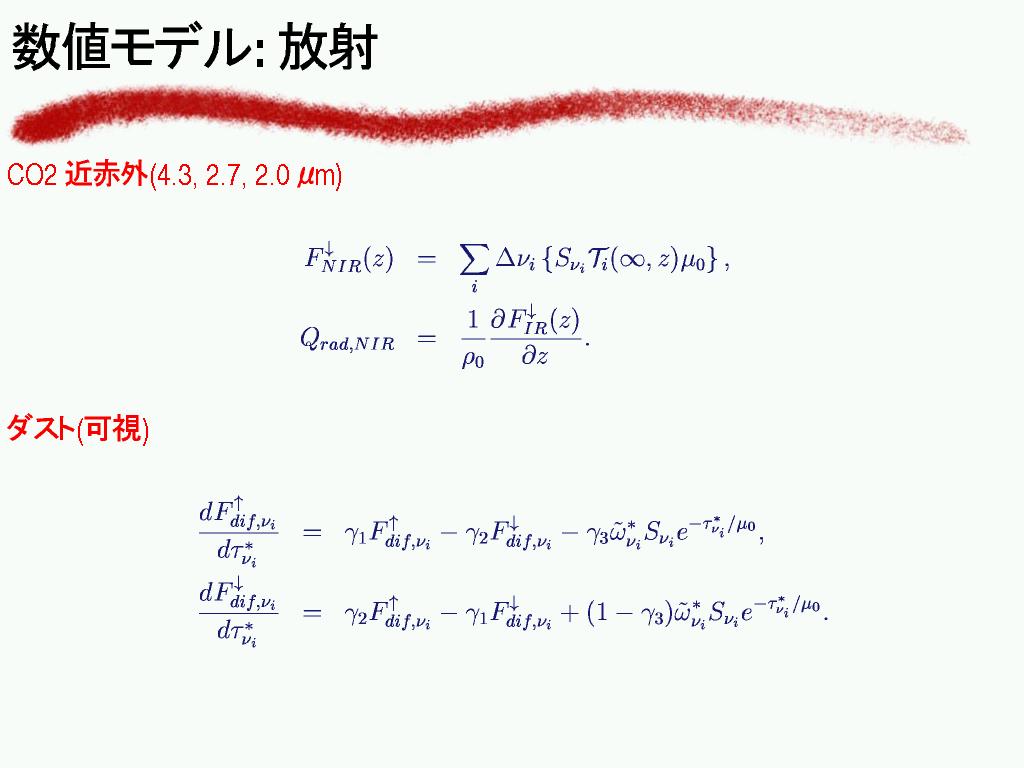 数値モデル: 放射
CO2 近赤外(4.3, 2.7, 2.0 μm)
$F_{NIR}^{\downarrow}(z) = \sum_{i} \Delta\nu_i \{S_{\nu_i} \mathcal{T}_i(\infty, z)\mu_0\},$
$Q_{rad,NIR} = \frac{1}{\rho_0} \frac{\partial F_{IR}^{\downarrow}(z)}{\partial z}.$
ダスト(可視)
$\frac{dF_{dif,\nu_i}^{\uparrow}}{d\tau_{\nu_i}^{*}} = \gamma_1 F_{dif,\nu_i}^{\uparrow} - \gamma_2 F_{dif,\nu_i}^{\downarrow} - \gamma_3 \tilde{\omega}_{\nu_i}^{*} S_{\nu_i} e^{-\tau_{\nu_i}^{*}/\mu_0},$
$\frac{dF_{dif,\nu_i}^{\downarrow}}{d\tau_{\nu_i}^{*}} = \gamma_2 F_{dif,\nu_i}^{\uparrow} - \gamma_1 F_{dif,\nu_i}^{\downarrow} + (1 - \gamma_3) \tilde{\omega}_{\nu_i}^{*} S_{\nu_i} e^{-\tau_{\nu_i}^{*}/\mu_0}.$